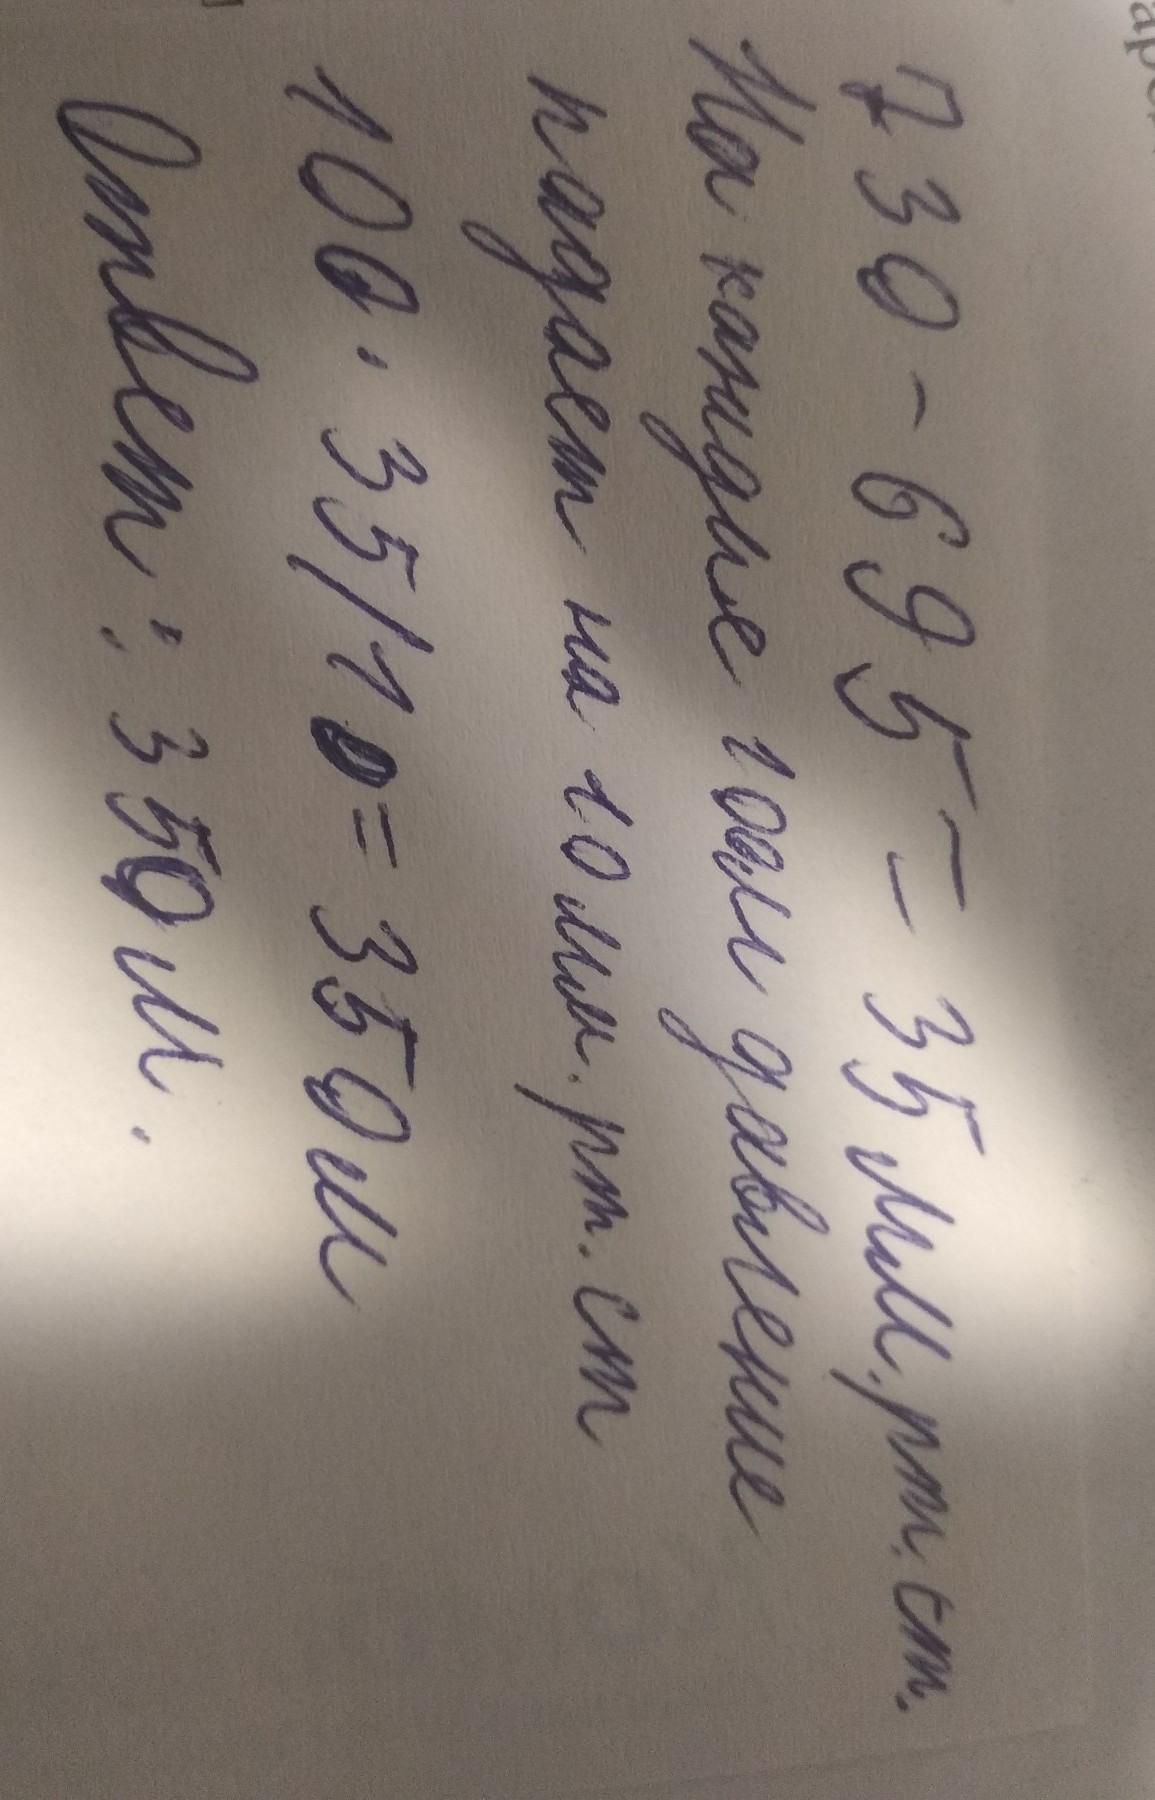 730 - 695 = 35 мм.рт.ст.
На каждые 100м давление
падает на 10мм.рт.ст
100 · 35/10 = 350м
Ответ: 350м.